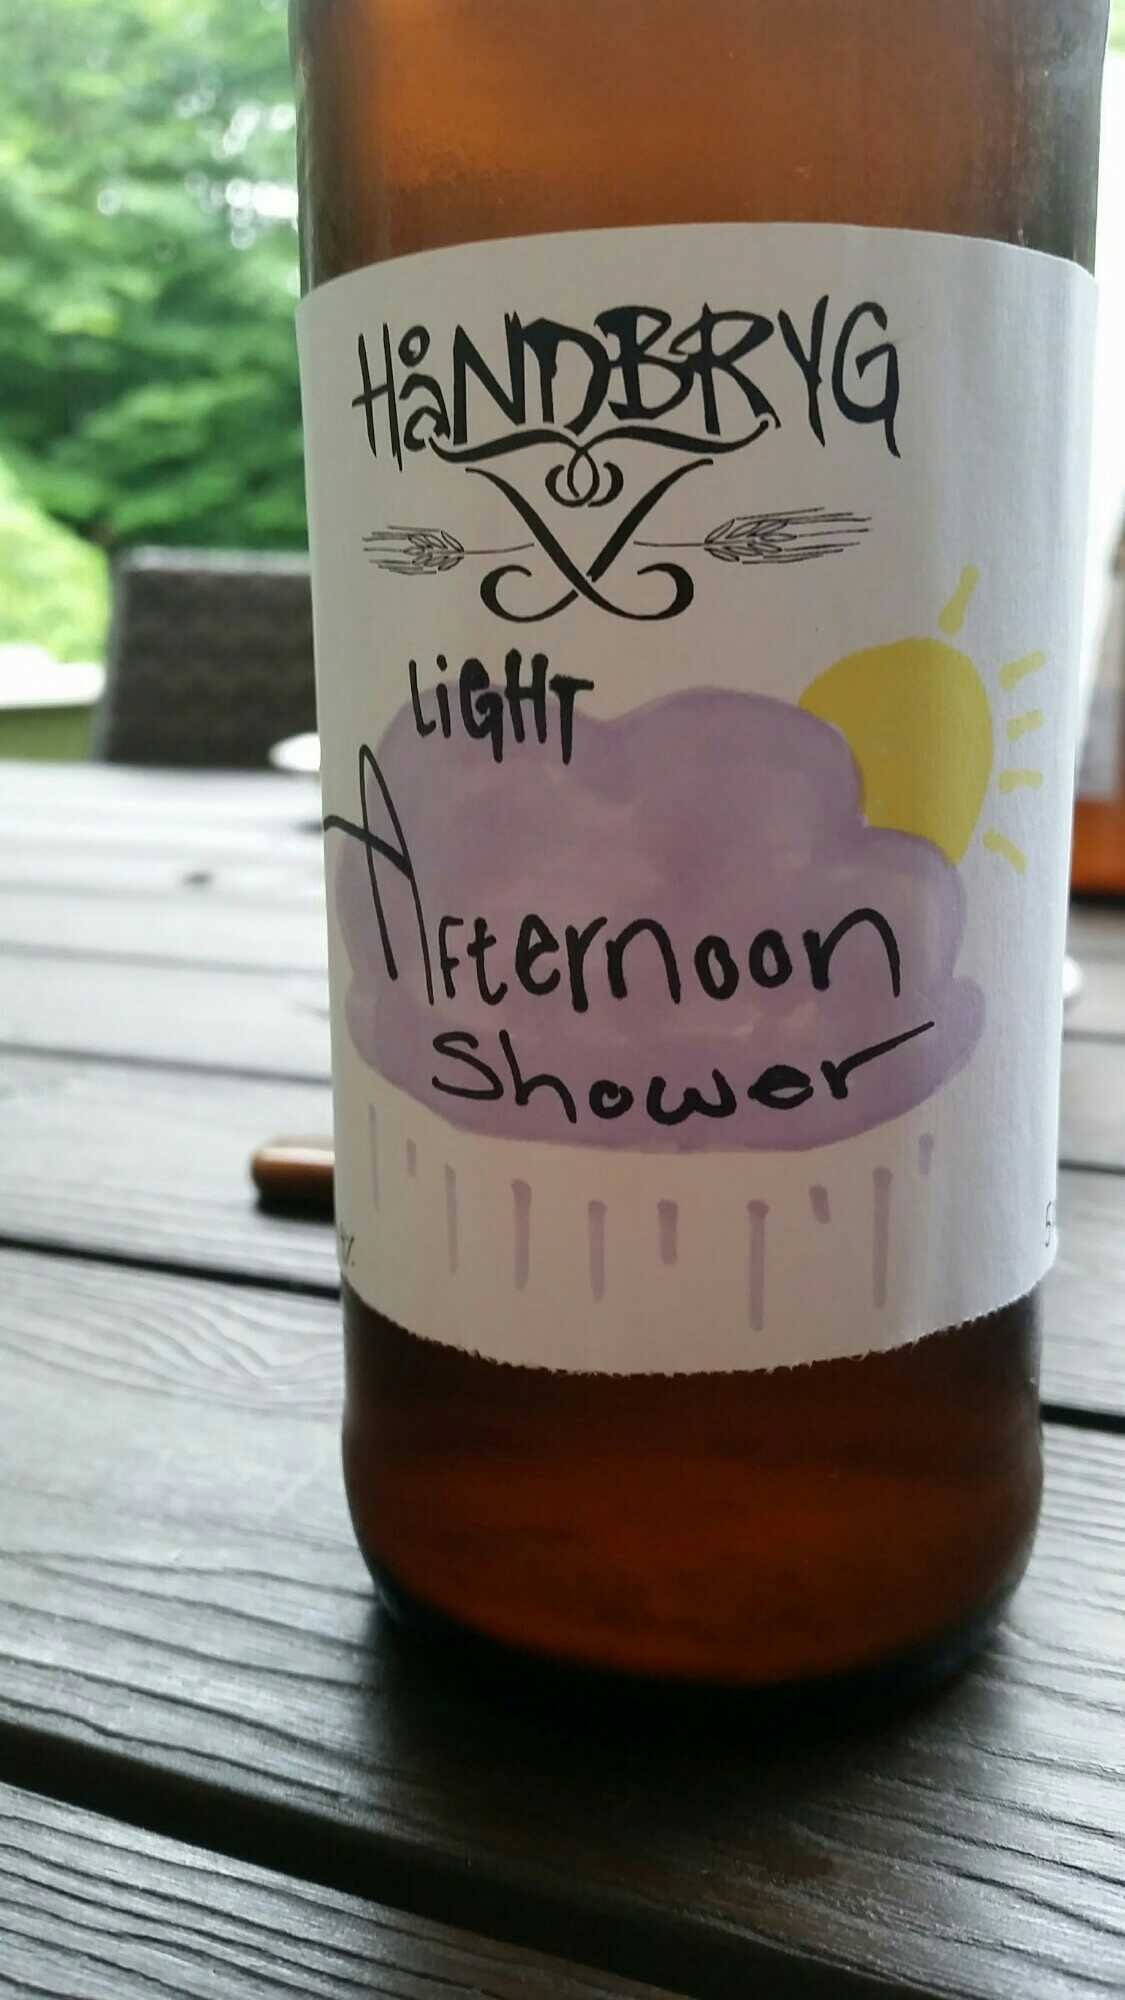 HåNDBRYG
LiGHT
Afternoon
Shower